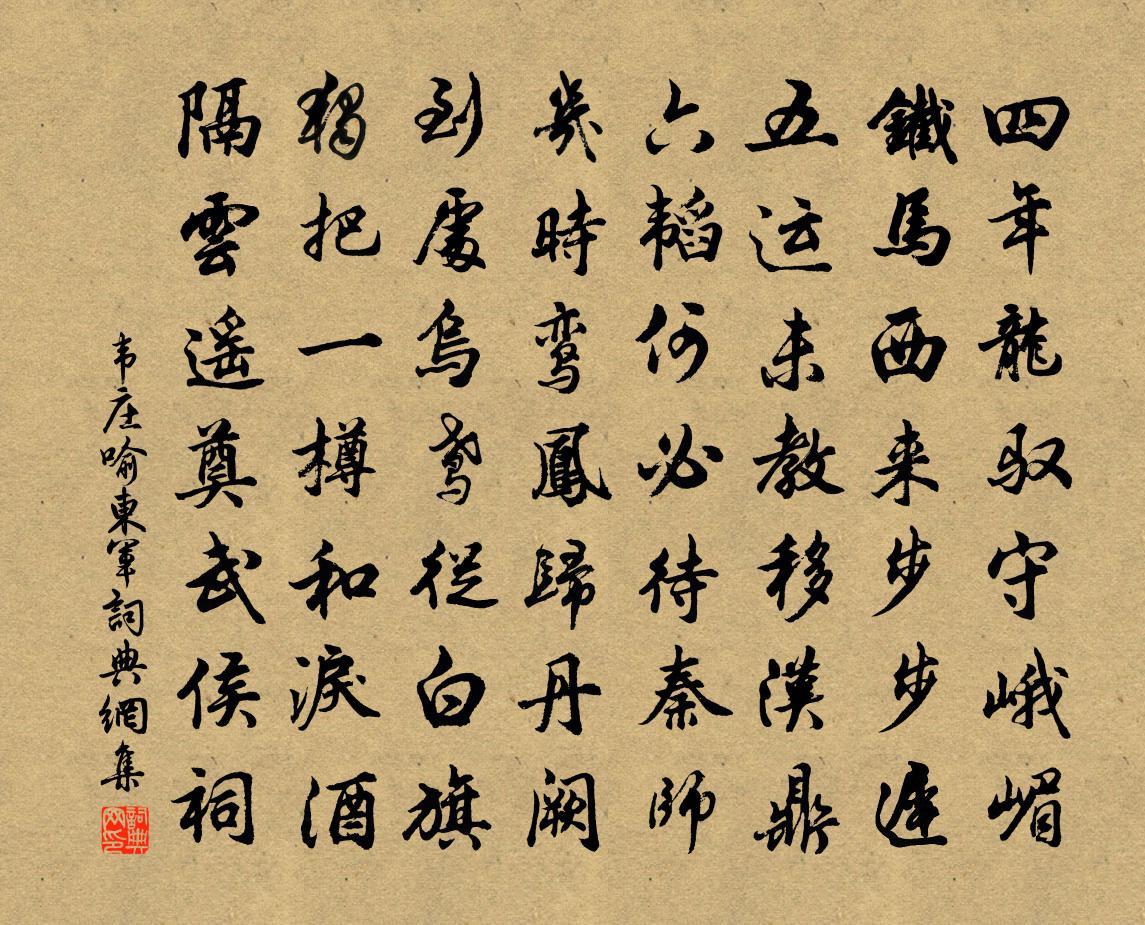 四年龍馭守峨嵋
鐵馬西来步步遲
五运未教移漢鼎
六韬何必待秦師
幾時鸾鳳歸丹阙
到處烏鸢從白旗
獨把一樽和淚酒
隔雲遥奠武侯祠
韦庄喻東軍詞典網集
詞典网印